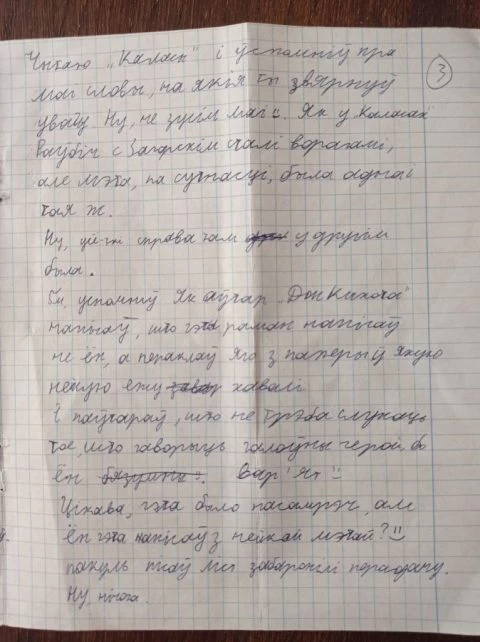 3
Чытаю „Каласы" і ўспомніў пра
мае словы, на якія ты звярнуў
увагу Ну, не зусім мае :). Як у „Каласах
Раўбіч с Загорскім сталі ворагамі,
але мэта, па сутнасці, была адна і
тая ж.
Ну, ці справа там у другім
была.
Ты, успомніў Як аўтар „Дон Кихота"
напісаў, што гэта раман напісаў
не ён, а пераклаў яго з паперы ў якую
нейкую ежу хавалі
І паўтараў, што не трэба слухаць
тое, што гаворыць галоўны герой, бо
ён Вар'ят :)
Цікава, гэта было насамрэч, але
ён гэта напісаў з нейкай мэтай? :)
пакуль пісаў мы забаранілі перадачу.
Ну, нічога.